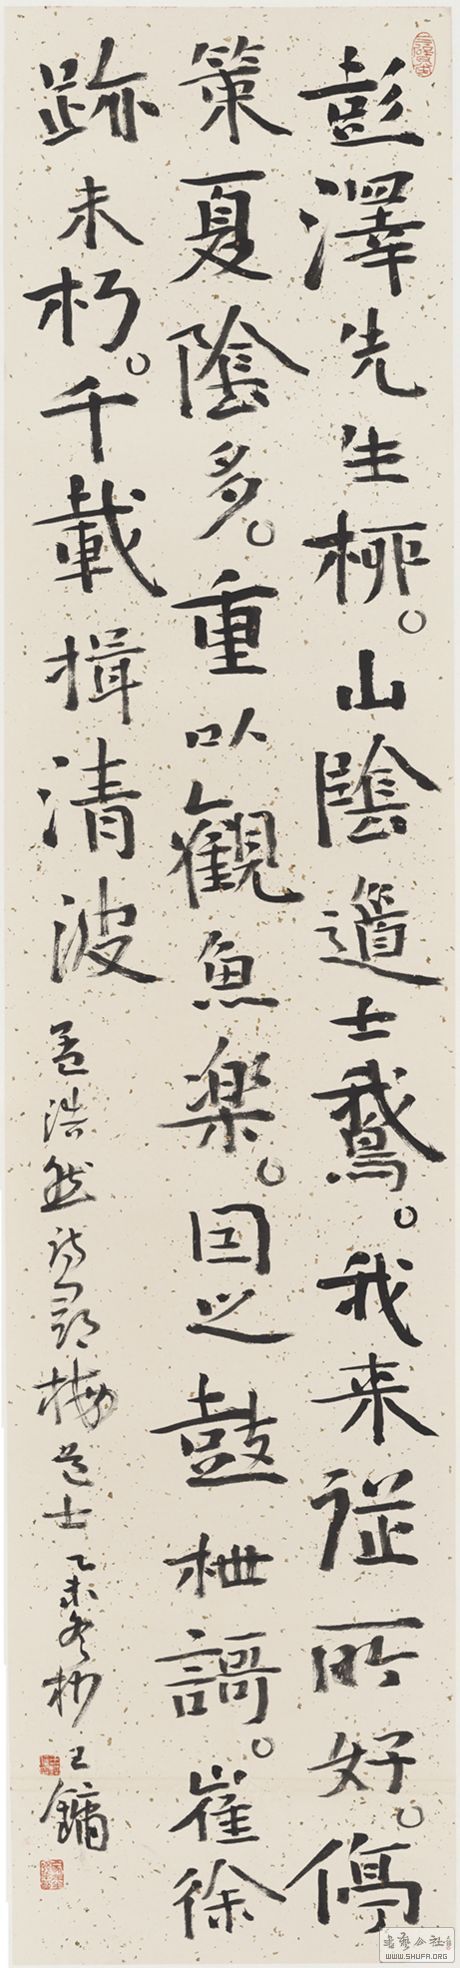 彭澤先生柳。山陰道士鵞。我来從所好。停
策夏陰多。重以觀魚楽。因之鼓枻謌。崔徐
跡未朽。千載揖清波
孟浩然诗尋梅道士 乙未冬抄 王鏞
书艺公社
WWW.SHUFA.ORG